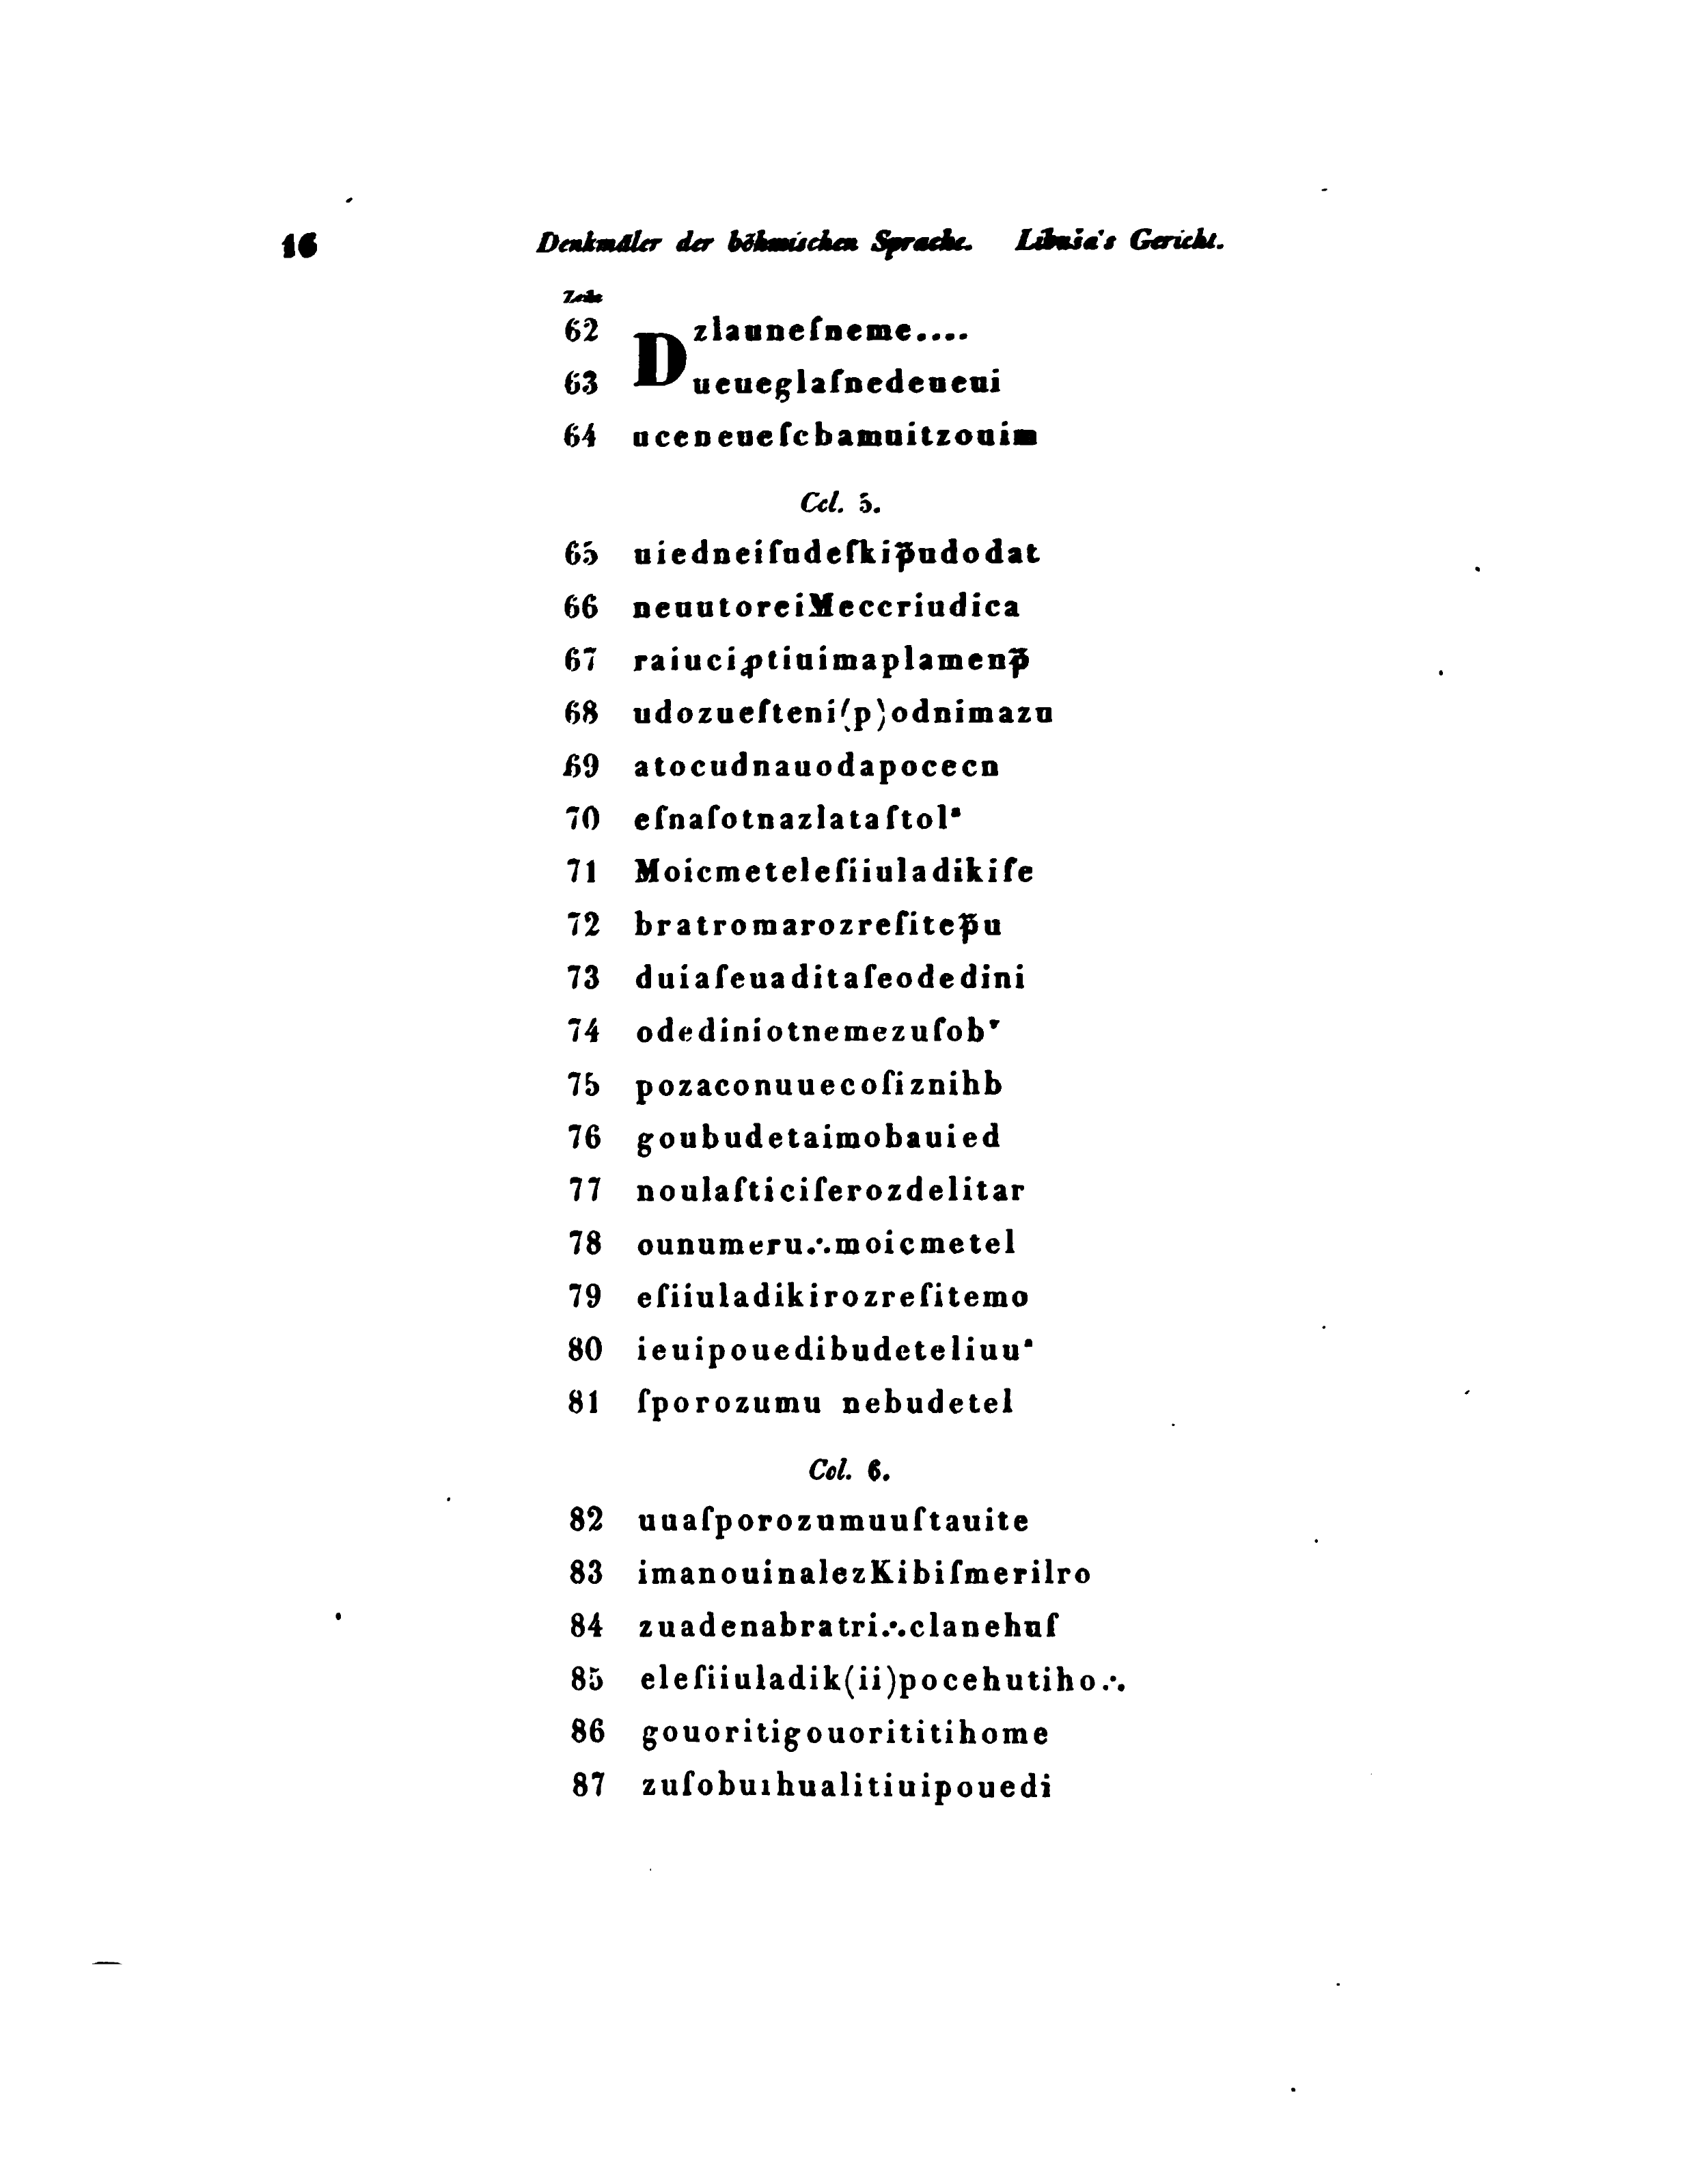 16 Denkmäler der böhmischen Sprache. Libuša's Gericht.
Zeile
62 zlauneſneme....
D
63 ueueglaſnedeueui
64 uceneueſcbamuitzouim
Col. 5.
65 uiedneiſudeſkip̄udodat
66 neuutoreiMeccriudica
67 raiuciꝓtiuimaplamenp̄
68 udozueſteni(p)odnimazu
69 atocudnauodapocecn
70 eſnaſotnazlataſtolᵃ
71 Moicmeteleſiiuladikiſe
72 bratromarozreſitep̄u
73 duiaſeuaditaſeodedini
74 odediniotnemezuſobᵛ
75 pozaconuuecoſiznihb
76 goubudetaimobauied
77 noulaſticiſerozdelitar
78 ounumeru.·.moicmetel
79 eſiiuladikirozreſitemo
80 ieuipouedibudeteliuuᵃ
81 ſporozumu nebudetel
Col. 6.
82 uuaſporozumuuſtauite
83 imanouinalezKibiſmerilro
84 zuadenabratri.·.clanehuſ
85 eleſiiuladik(ii)pocehutiho.·.
86 gouoritigouorititihome
87 zuſobuıhualitiuipouedi